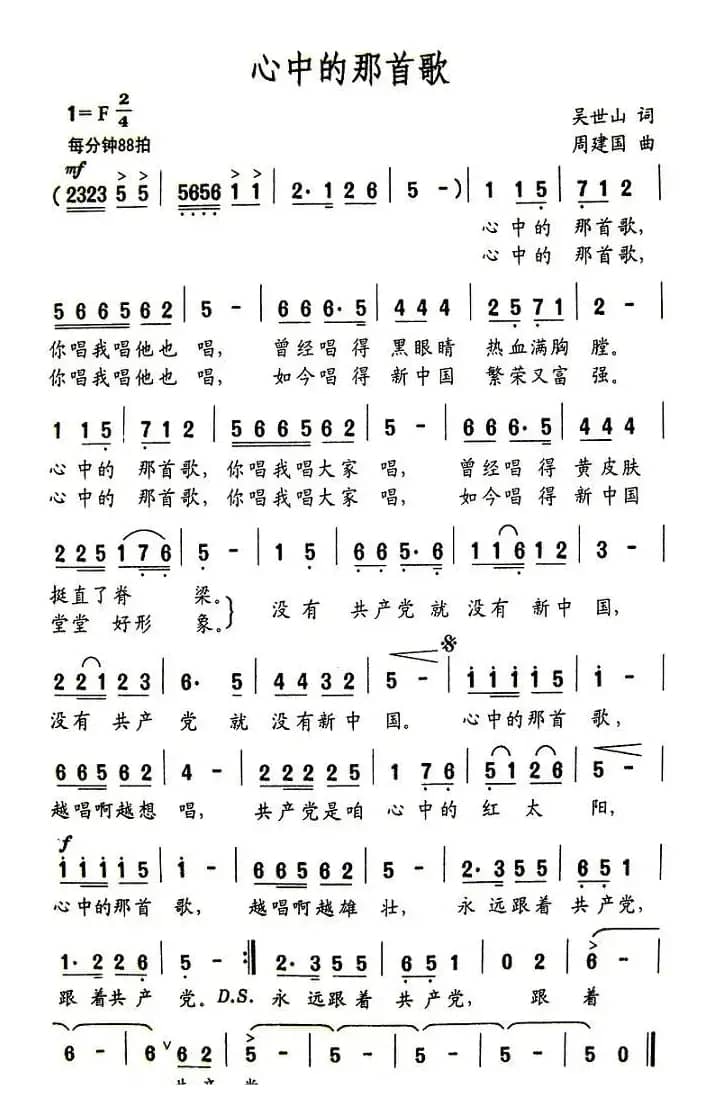 心中的那首歌
1=F 2/4
吴世山 词
每分钟88拍
周建国 曲
mf
( 2323 5 5 | 5656 1 1 | 2· 1 2 6 | 5 - ) | 1 1 5 | 7 1 2 |
心 中的 那首歌,
心 中的 那首歌,
5 6 6 5 6 6 2 | 5 - | 6 6 6· 5 | 4 4 4 | 2 5 7 1 | 2 - |
你唱我唱他也 唱, 曾经唱 得 黑眼睛 热血满胸 膛。
你唱我唱他也 唱, 如今唱 得 新中国 繁荣又富 强。
1 1 5 | 7 1 2 | 5 6 6 5 6 6 2 | 5 - | 6 6 6· 5 | 4 4 4 |
心 中的 那首歌, 你唱我唱大家 唱, 曾经唱 得 黄皮肤
心 中的 那首歌, 你唱我唱大家 唱, 如今唱 得 新中国
2 2 5 1 7 6 | 5 - | 1 5 | 6 6 5· 6 | 1 1 6 1 2 | 3 - |
挺直了脊 梁。 没有 共产党就 没有 新中 国,
堂堂 好形 象。
2 2 1 2 3 | 6· 5 | 4 4 3 2 | 5 - | 1 1 1 1 5 | 1 - |
没有 共产 党 就 没有新中 国。 心中的那首 歌,
6 6 5 6 2 | 4 - | 2 2 2 2 5 | 1 7 6 | 5 1 2 6 | 5 - |
越唱啊越想 唱, 共产党是咱 心 中的 红 太 阳,
f
1 1 1 1 5 | 1 - | 6 6 5 6 2 | 5 - | 2· 3 5 5 | 6 5 1 |
心中的那首 歌, 越唱啊越雄 壮, 永 远跟着 共产党,
1· 2 2 6 | 5 - :| 2· 3 5 5 | 6 5 1 | 0 2 | 6 - |
跟 着共产 党。 D.S. 永 远跟着 共产党, 跟 着
6 - | 6 6 2 | 5 - | 5 - | 5 - | 5 0 ‖